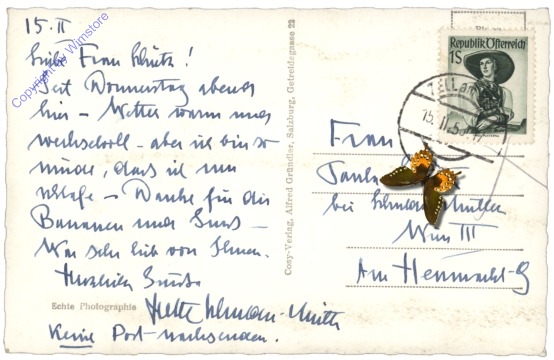 15.II
Liebe Frau Schütz!
Seit Donnerstag abends
hier – Wetter warm und
wechselvoll – aber ich bin so
müde, dass ich nur
schlafe – Danke für die
Bananen und Gruss –
War sehr lieb von Ihnen.
Herzliche Grüsse
Echte Photographie
Keine Post nachsenden.
Cosy-Verlag, Alfred Gründler, Salzburg, Getreidegasse 22
Republik Österreich
1S
ZELL AM
15.II.5
Frau
bei
Wien III
Am Heumarkt 9
Copyright by Wimstore